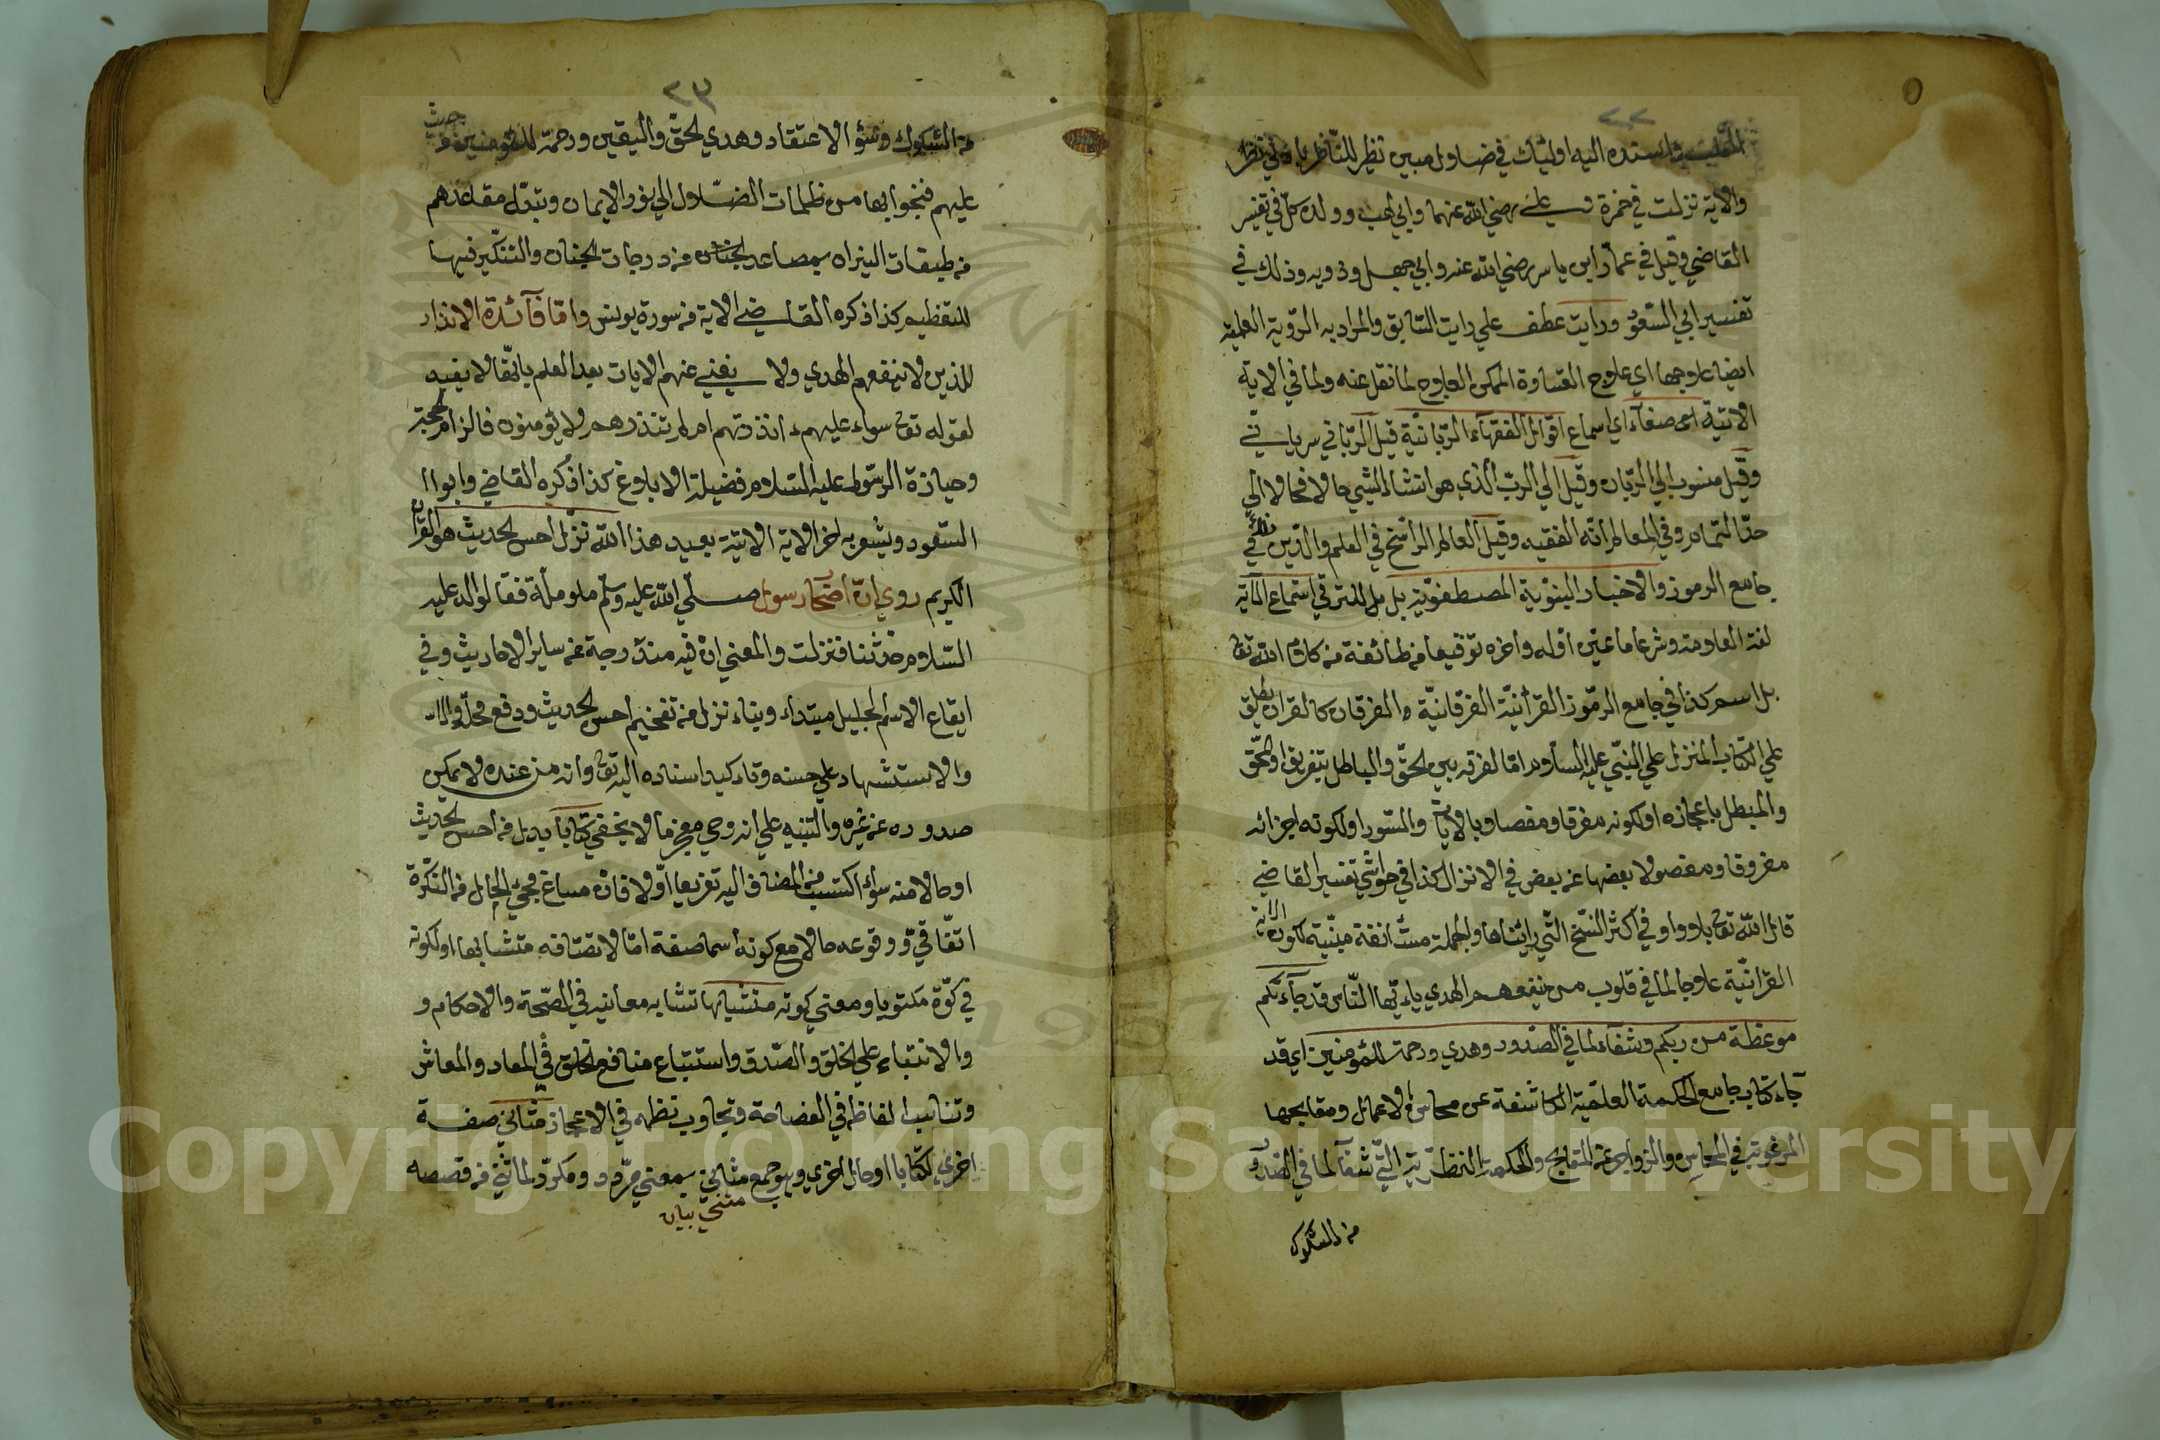 ٢٢
اليه اولئك في ضلال مبين نظير للناظر نظر
والاية نزلت في حمزة وعلي رضي الله عنهما وابي لهب وولده كل في تفسير
القاضي وقيل في عمار ابن ياسر رضي الله عنه وابي جهل وذويه وذلك في
تفسير ابي السعود ورايت عطف علي رايت السابق والمراد به الرؤية العلمية
ايضا علاجها اي علاج القساوة الممكن العلاج لما نقل عنه ولما في الاية
الاتية اصغاء اي اسماع اقوال الفقهاء الربانية قيل الرباني سرياني
وقيل منسوب الي الربان وقيل الي الرب الذي هو انشاء الشيء حالا فحالا الي
حد التمام وفي المعالم انه الفقيه وقيل العالم الراسخ في العلم والدين كذا في
جامع الرموز والاخبار النبوية المصطفوية بل بل للترقي استماع الآية
لغة العلامة وشرعا ما عين اوله واخره توقيفا من طائفة من كلام الله تع
بل اسم كذا في جامع الرموز القرآنية الفرقانية والفرقان كالقران يطلق
علي الكتاب المنزل علي النبي عليه السلام اما لفرقه بين الحق والباطل بتفريق او المحق
والمبطل باعجازه او لكونه مفرقا ومفصلا بالايات والسور او لكونه اجزائه
مفروقا ومفصولا بعضها عن بعض في الانزال كذا في حواشي تفسير القاضي
قال الله تع بلا واو في اكثر النسخ التي رايناها والجملة مستأنفة مبينة لكون الاية
القرانية علاجا لما في قلوب من ينفعهم الهدي يا ايها الناس قد جاءتكم
موعظة من ربكم وشفاء لما في الصدور وهدي ورحمة للمؤمنين اي قد
جاء كتاب جامع للحكمة العلمية الكاشفة عن محاسن الاعمال ومقابحها
المرغوبة في المحاسن والزواجر عن المقابح والحكمة النظرية التي شفاء لما في الصدور
من الشكوك
٢٣
من الشكوك وسوء الاعتقاد وهدي الحق واليقين ورحمة للمؤمنين حيث
عليهم فنجوا بها من ظلمات الضلال الي نور الايمان وتبدل مقاعدهم
من طبقات النيران بمصاعد من درجات الجنان والتنكير فيها
للتعظيم كذا ذكره القاضي الاية في سورة يونس واما فائدة الانذار
للذين لا ينفعهم الهدي ولا يغني عنهم الايات بعد العلم بانها لا يفيد
لقوله تع سواء عليهم ءانذرتهم ام لم تنذرهم لا يؤمنون فالزام الحجة
وحيازة الرسول عليه السلام فضيلة الابلاغ كذا ذكره القاضي وابو ا
السعود ويشعر به اخر الاية الاتية بعيد هذا الله نزل احسن الحديث هو القرآن
الكريم روي ان اصحاب رسول صلي الله عليه وسلم ملوا ملة فقالوا له عليه
السلام حدثنا فنزلت والمعني ان فيه مندوحة عن ساير الاحاديث وفي
ايقاع الاسم الجليل مبتداء وبناء نزل من تفخيم احسن الحديث ورفع محله
والاستشهاد علي حسنه وتاكيد اسناده اليه تع وانه من عنده لا يمكن
صدوره عن غيره والتنبيه علي انه وحي معجز ما لا يخفي كتابا بدل من احسن الحديث
او حال منه سواء اكتسب من المضاف اليه تعريفا او لا فان مساغ مجيء الحال من النكرة
اتفاقي ووقوعه حالا مع كونه اسما صفة اما لاتصافه متشابها او لكونه
في كوة مكتوبا ومعني كونه متشابها تشابه معانيه في الصحة والاحكام و
والابتناء علي الخلق والصدق واستتباع منافع الخلق في المعاد والمعاش
وتناسب الفاظه في الفصاحة وتجاوب نظمه في الاعجاز مثاني صفة
اخري لكتابا او حال اخري وهو جمع مثني بمعني مردد ومكرر لما ثني من قصصه
مثني بيان
Copyright © King Saud University
1957